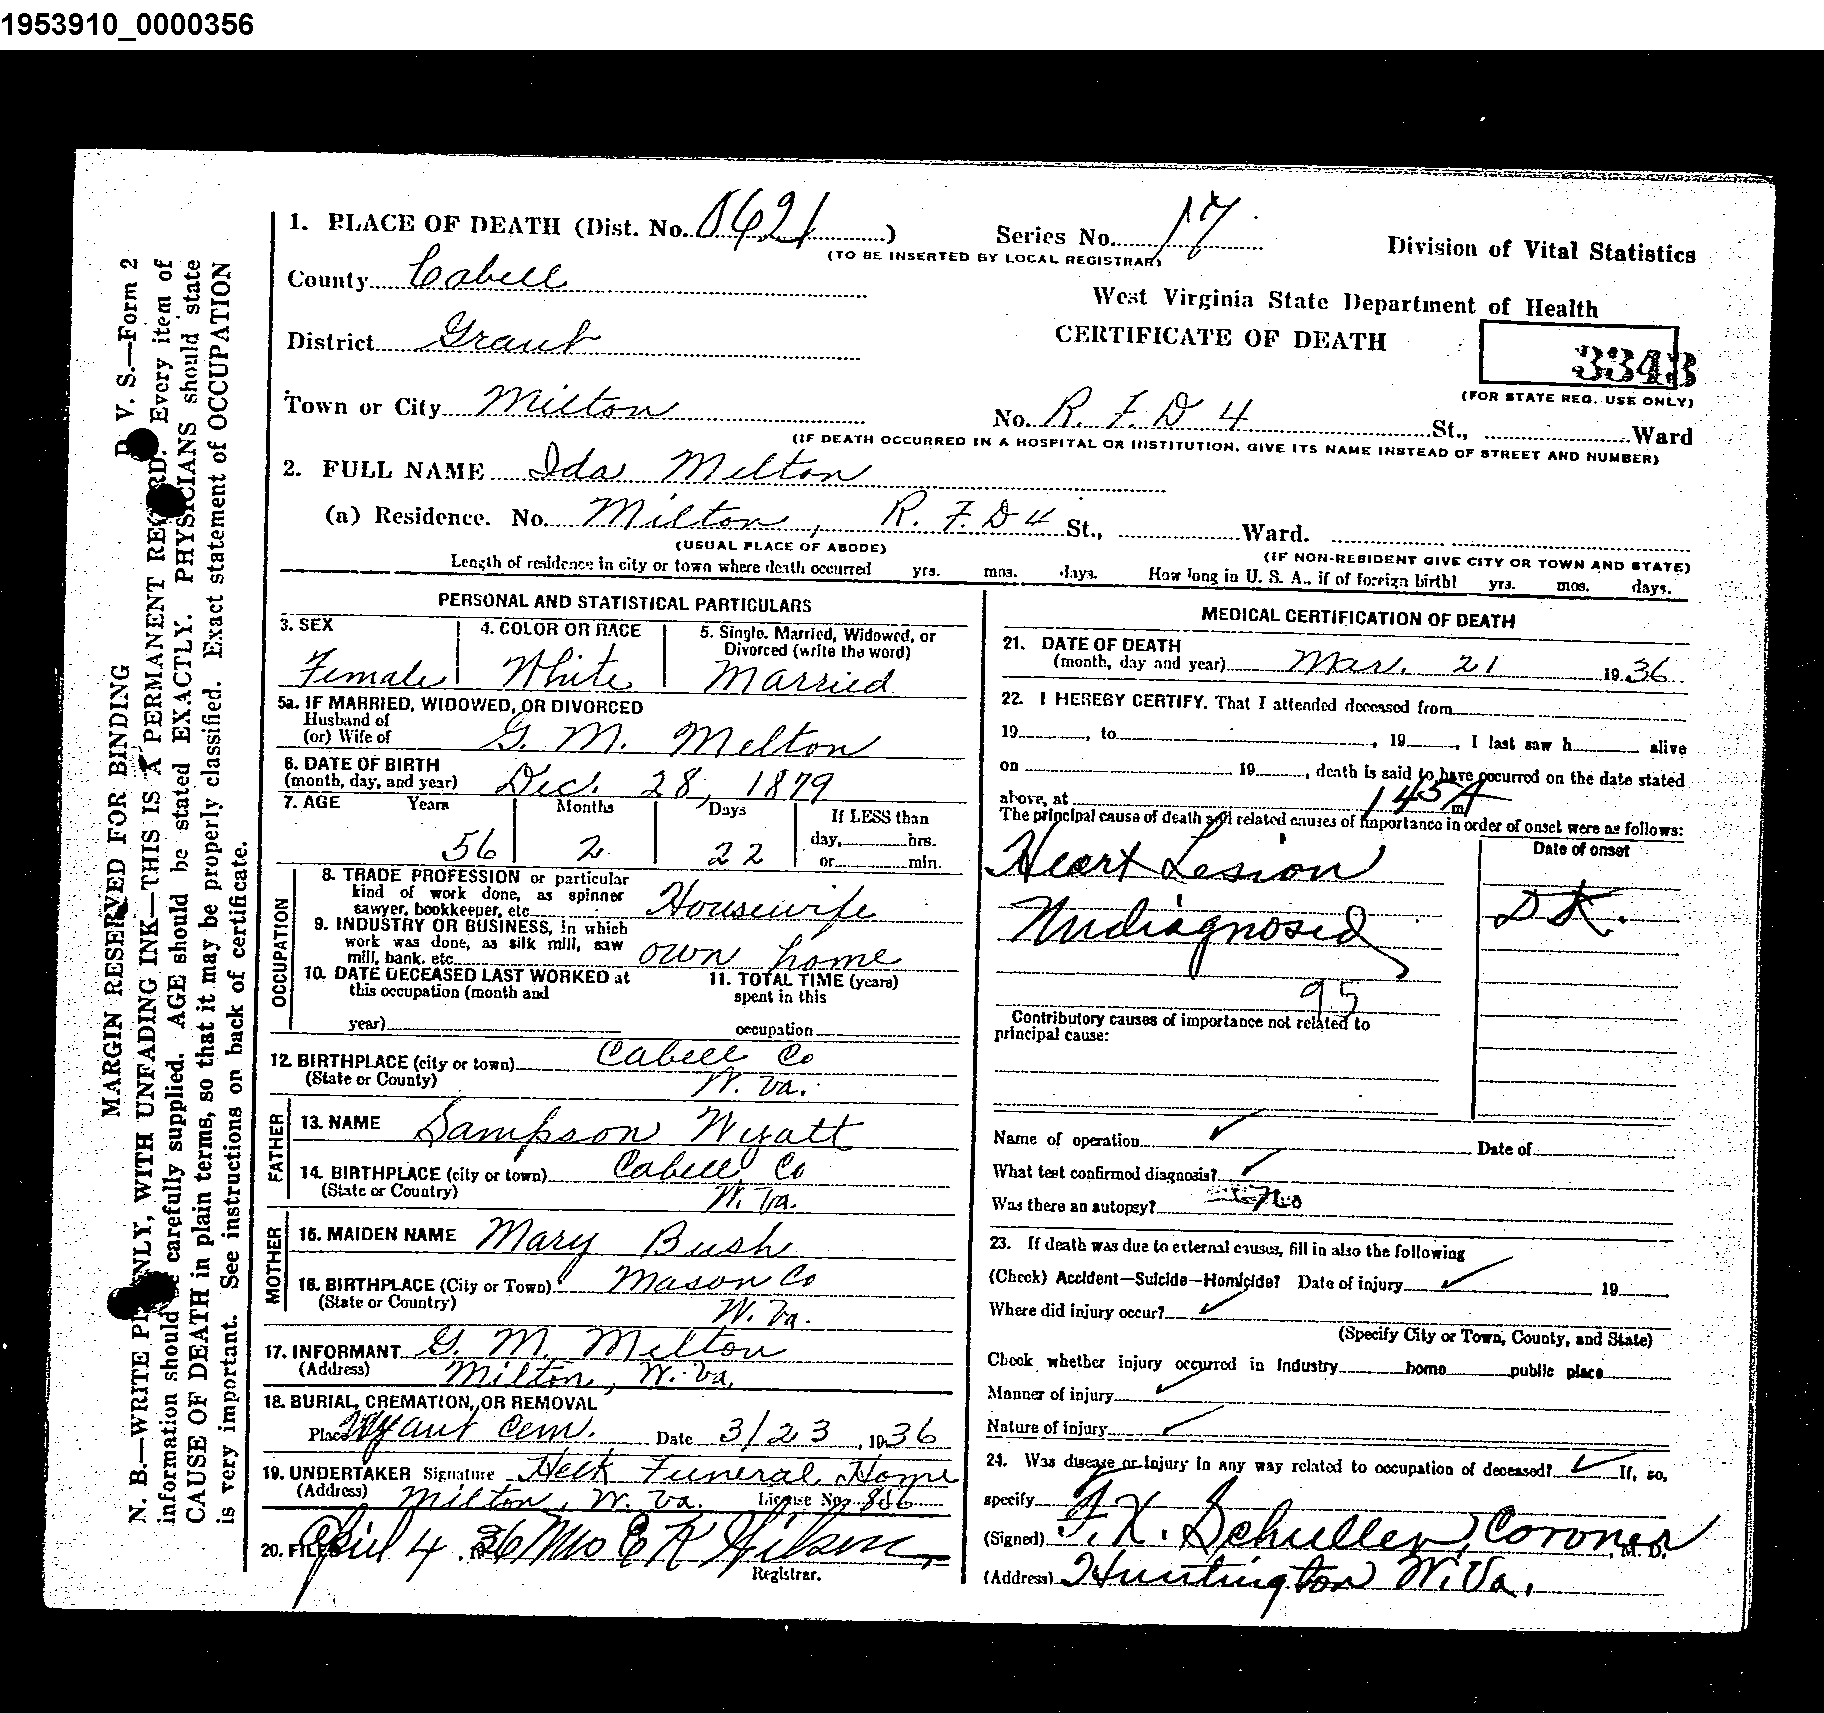 1953910_0000356
1. PLACE OF DEATH (Dist. No. 0621 )
(TO BE INSERTED BY LOCAL REGISTRAR)
Series No. 17
Division of Vital Statistics
County Cabell
West Virginia State Department of Health
District Grant
CERTIFICATE OF DEATH
3343
(FOR STATE REG. USE ONLY)
Town or City Milton
No. R. F. D 4 St., Ward
(IF DEATH OCCURRED IN A HOSPITAL OR INSTITUTION, GIVE ITS NAME INSTEAD OF STREET AND NUMBER)
2. FULL NAME Ida Melton
(a) Residence. No. Milton, R. F. D 4 St., Ward.
(USUAL PLACE OF ABODE) (IF NON-RESIDENT GIVE CITY OR TOWN AND STATE)
Length of residence in city or town where death occurred yrs. mos. days. How long in U. S. A., if of foreign birth? yrs. mos. days.
PERSONAL AND STATISTICAL PARTICULARS
3. SEX
Female
4. COLOR OR RACE
White
5. Single, Married, Widowed, or
Divorced (write the word)
Married
5a. IF MARRIED, WIDOWED, OR DIVORCED
Husband of
(or) Wife of G. M. Melton
6. DATE OF BIRTH
(month, day, and year) Dec. 28, 1879
7. AGE Years Months Days If LESS than
day, hrs.
56 2 22 or min.
OCCUPATION
8. TRADE PROFESSION or particular
kind of work done, as spinner
sawyer, bookkeeper, etc. Housewife
9. INDUSTRY OR BUSINESS, in which
work was done, as silk mill, saw
mill, bank, etc. own home
10. DATE DECEASED LAST WORKED at
this occupation (month and
year)
11. TOTAL TIME (years)
spent in this
occupation
12. BIRTHPLACE (city or town) Cabell Co
(State or County) W. Va.
FATHER
13. NAME Sampson Wyatt
14. BIRTHPLACE (city or town) Cabell Co
(State or Country) W. Va.
MOTHER
15. MAIDEN NAME Mary Bush
16. BIRTHPLACE (City or Town) Mason Co
(State or Country) W. Va.
17. INFORMANT G. M. Melton
(Address) Milton, W. Va.
18. BURIAL, CREMATION, OR REMOVAL
Place Cem. Date 3/23, 1936
19. UNDERTAKER Signature Heck Funeral Home
(Address) Milton, W. Va. License No. 886
20. FILED April 4 1936 Mrs E K Wilson,
Registrar.
MEDICAL CERTIFICATION OF DEATH
21. DATE OF DEATH
(month, day and year) Mar. 21 1936
22. I HEREBY CERTIFY. That I attended deceased from
19 , to , 19 , I last saw h alive
on 19 , death is said to have occurred on the date stated
above, at 1 45 A m.
The principal cause of death and related causes of importance in order of onset were as follows:
Date of onset
Heart Lesion
Undiagnosed
D K.
95
Contributory causes of importance not related to
principal cause:
Name of operation Date of
What test confirmed diagnosis?
Was there an autopsy? no
23. If death was due to external causes, fill in also the following
(Check) Accident—Suicide—Homicide? Date of injury 19
Where did injury occur?
(Specify City or Town, County, and State)
Check whether injury occurred in industry home public place
Manner of injury
Nature of injury
24. Was disease or injury in any way related to occupation of deceased? If, so,
specify
(Signed) F. X. Schuller, Coroner M. D.
(Address) Huntington W. Va.
V. S.—Form 2
MARGIN RESERVED FOR BINDING
N. B.—WRITE PLAINLY, WITH UNFADING INK—THIS IS A PERMANENT RECORD. Every item of
information should be carefully supplied. AGE should be stated EXACTLY. PHYSICIANS should state
CAUSE OF DEATH in plain terms, so that it may be properly classified. Exact statement of OCCUPATION
is very important. See instructions on back of certificate.